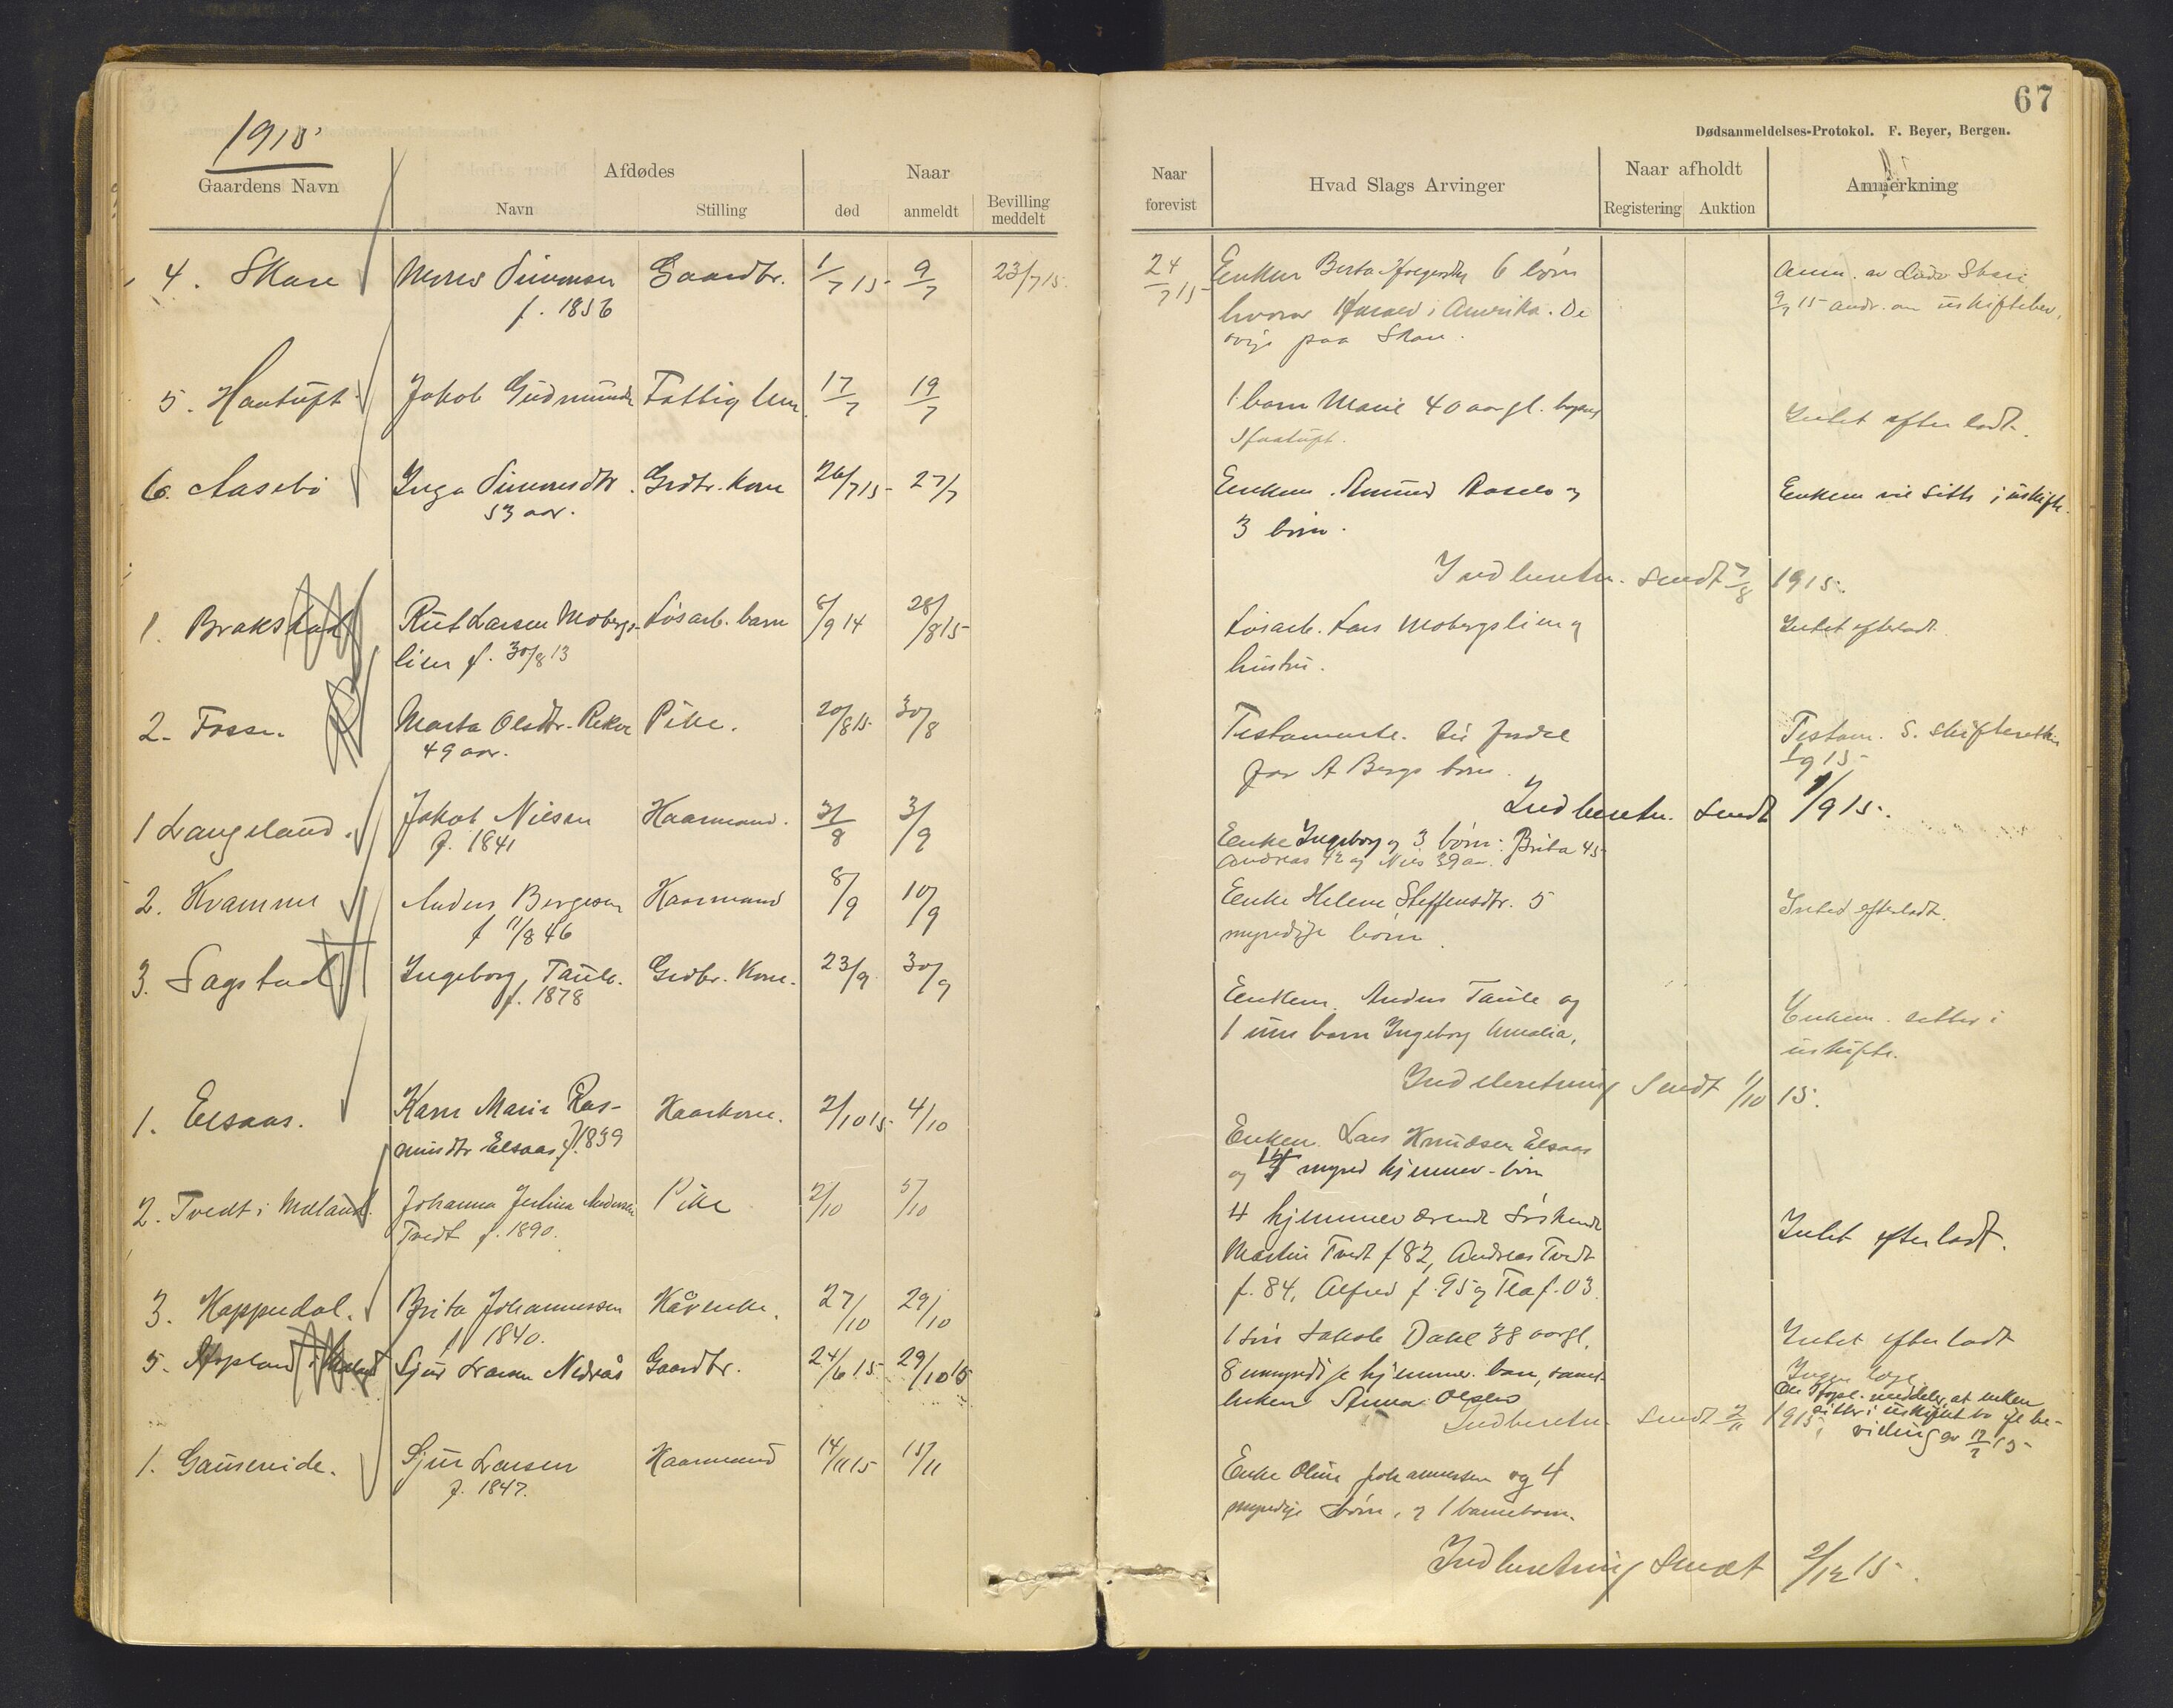 67
Dødsanmeldelses-Protokol. F. Beyer, Bergen.
1915
Gaardens Navn
Afdødes
Navn
Stilling
Naar
død
anmeldt
Bevilling meddelt
Naar forevist
Hvad Slags Arvinger
Naar afholdt
Registering
Auktion
Anmerkning
4. Skare Simonsen Gaardbr. 1/7 15 9/7 23/7 15. 24/7 15 Enken Berta 6 børn anm. av Skare
f. 1856 hvorav i Amerika. De 9/7 15 andr. om uskiftebev.
øvrige paa Skare.
5. Haatuft Jakob Gudmunds Fattiglem 17/7 19/7 1 barn Marie 40 aar gl. Intet efterladt.
Haatuft.
6. Aasebø Inga Simonsdtr. Grdbr. kone 26/7 15 27/7 Enkem. Amund og Enkem vil sitte i uskifte.
53 aar. 3 børn.
Indberetn. sendt 7/8 1915.
1. Brakstad Rut Larsen Mobergs- Løsarb. barn 8/9 14 28/8 15 Løsarb. Lars Mobergslien og Intet efterladt
lien f. 30/8 13 hustru.
2. Fosse. Marta Olsdtr. Reker Pike. 20/8 15 30/8 Testamente. Testam. s. skifteretten
49 aar. A Bergs børn. 1/9 15
Indberetn. sendt 1/9 15.
1 Langeland. Jakob Nilsen Kaarmand. 31/8 3/9 Enke Ingeborg og 3 børn: Brita 45
f. 1841 Andreas 42 og Nils 39 aar.
2. Kvamme Anders Bergesen Kaarmand 8/9 10/9 Enke Helene Steffensdtr. 5 Intet efterladt.
f 11/8 46 myndige børn.
3. Sagstad Ingeborg Taule. Grdbr. Kone. 23/9 30/9 Enkem. Anders Taule og Enkem. sitter i
f. 1878 1 um barn Ingeborg Amalia. uskifte.
Indberetning sendt 1/10 15.
1. Elsaas. Karen Marie Ras- Kaarkone. 2/10 15 4/10 Enkem. Lars Knudsen Elsaas
musdtr Elsaas f. 1839 og mynd hjemmev. børn
2. Tvedt i Meland. Johanna Andersen Pike 2/10 5/10 4 hjemmeværende søskende Intet efterladt.
Tvedt f. 1890. Martin Tvedt f 82, Andreas Tvedt
f. 84, Alfred f. 95 og Tea f. 03.
3. Koppedal. Brita Johannessen Kårenke. 27/10 29/10 1 søn Jakob Dahl 38 aar gl. Intet efterladt
f 1840.
5. Hopland i Sjur Larsen Nedrås Gaardbr. 24/6 15 29/10 15 8 umyndige hjemmev. barn, samt
enken Anna Olsdtr meddeler at enken
Indberetn sendt 2/11 1915. sitter i uskiftet bo ifl be-
villing av 12/7 15
1. Gauseneide. Sjur Larsen Kaarmand 14/11 15 15/11 Enke Oline Johannessen og 4
f. 1847. myndige børn, og 1 barnebarn.
Indberetning sendt 2/12 15.